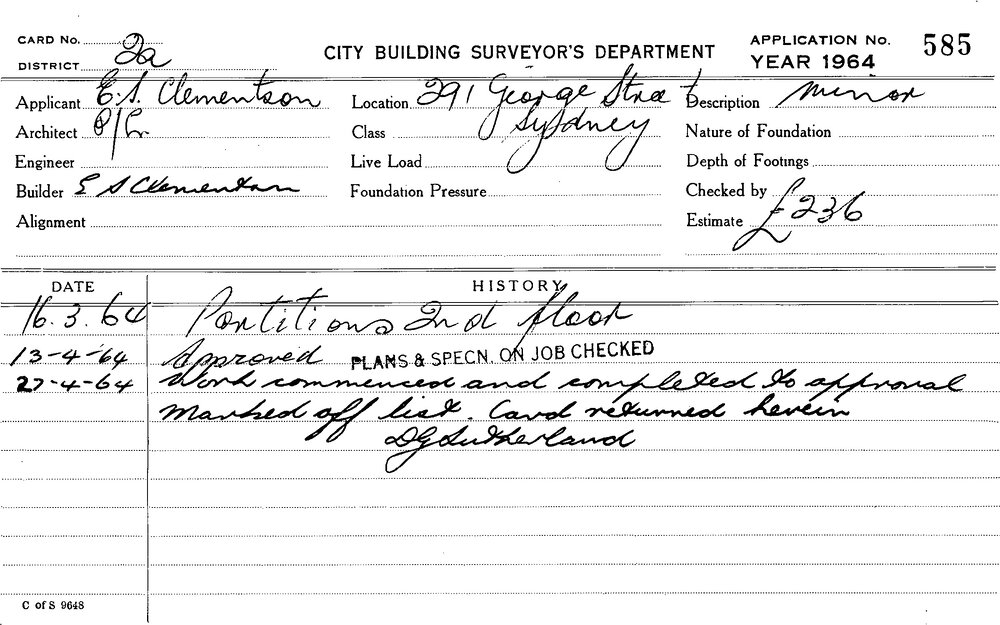 CARD No.
DISTRICT 2a
CITY BUILDING SURVEYOR'S DEPARTMENT
APPLICATION No. 585
YEAR 1964
Applicant E. S. Clementson
Location 291 George Street
Description minor
Architect
Class Sydney
Nature of Foundation
Engineer
Live Load
Depth of Footings
Builder E S Clementson
Foundation Pressure
Checked by
Alignment
Estimate £236
DATE HISTORY
16.3.64 Partitions 2nd floor
13-4-64 Approved PLANS & SPECN. ON JOB CHECKED
27-4-64 Work commenced and completed to approval
Marked off list. Card returned herein
DG Sutherland
C of S 9648